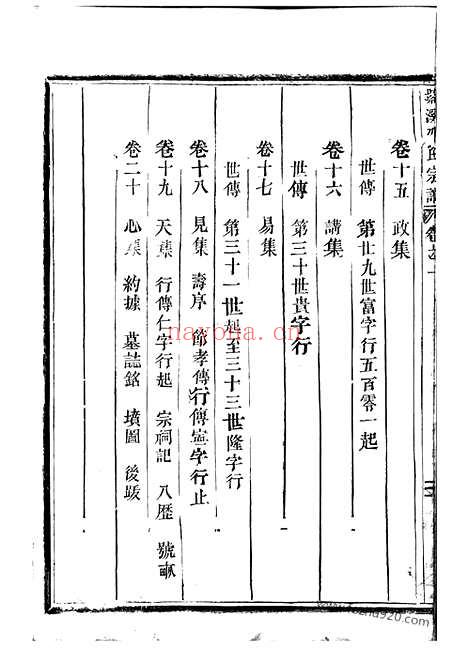 宗譜
卷十五 政集
世傳 第廿九世富字行五百零一起
卷十六 講集
世傳 第三十世貴字行
卷十七 易集
世傳 第三十一世起至三十三世隆字行
卷十八 見集 壽序 節孝傳 行傳寧字行止
卷十九 天集 行傳仁字行起 宗祠記 八歷 號畝
卷二十 心集 約據 墓誌銘 墳圖 後跋
nayona.cn